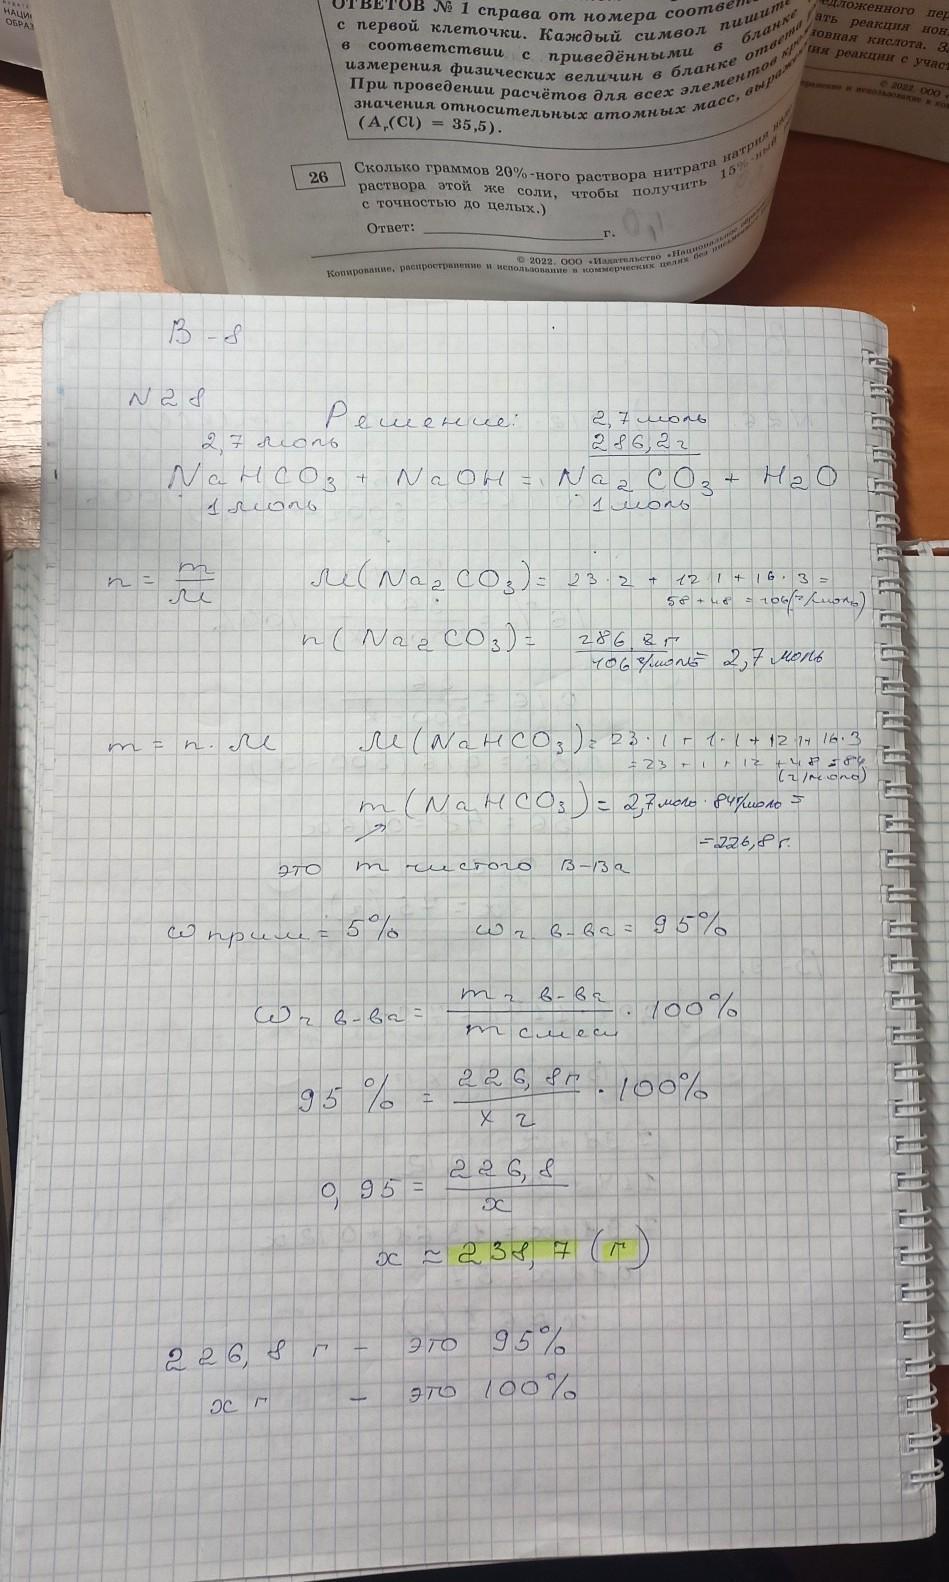 НАЦИ
ОБРАЗ
ОТВЕТОВ № 1 справа от номера соответ
с первой клеточки. Каждый символ пишите
в соответствии с приведёнными в бланке
измерения физических величин в бланке ответа
При проведении расчётов для всех элементов
значения относительных атомных масс, выраж
(Ar(Cl) = 35,5).
ать реакция ион
кислота.
ия реакции с участ
© 2022. ООО
26 Сколько граммов 20%-ного раствора нитрата натрия
раствора этой же соли, чтобы получить 15%-ный
с точностью до целых.)
Ответ: ____________ г.
© 2022. ООО «Издательство «Национальное
Копирование, распространение и использование в коммерческих целях без
В - 8
N 28
Решение:
2,7 моль 2,7 моль
286,2 г
NaHCO3 + NaOH = Na2CO3 + H2O
1 моль 1 моль
n = m/M M(Na2CO3) = 23·2 + 12·1 + 16·3 =
58 + 48 = 106(г/моль)
n(Na2CO3) = 286,2 г / 106 г/моль = 2,7 моль
m = n · M M(NaHCO3) = 23·1 + 1·1 + 12·1 + 16·3
= 23 + 1 + 12 + 48 = 84
(г/моль)
m(NaHCO3) = 2,7 моль · 84 г/моль =
= 226,8 г.
это m чистого в-ва
ω прим = 5% ω ч в-ва = 95%
ω ч в-ва = m ч в-ва / m смеси · 100%
95 % = 226,8 г / x г · 100%
0,95 = 226,8 / x
x ≈ 238,7 (г)
226,8 г - это 95%
x г - это 100%